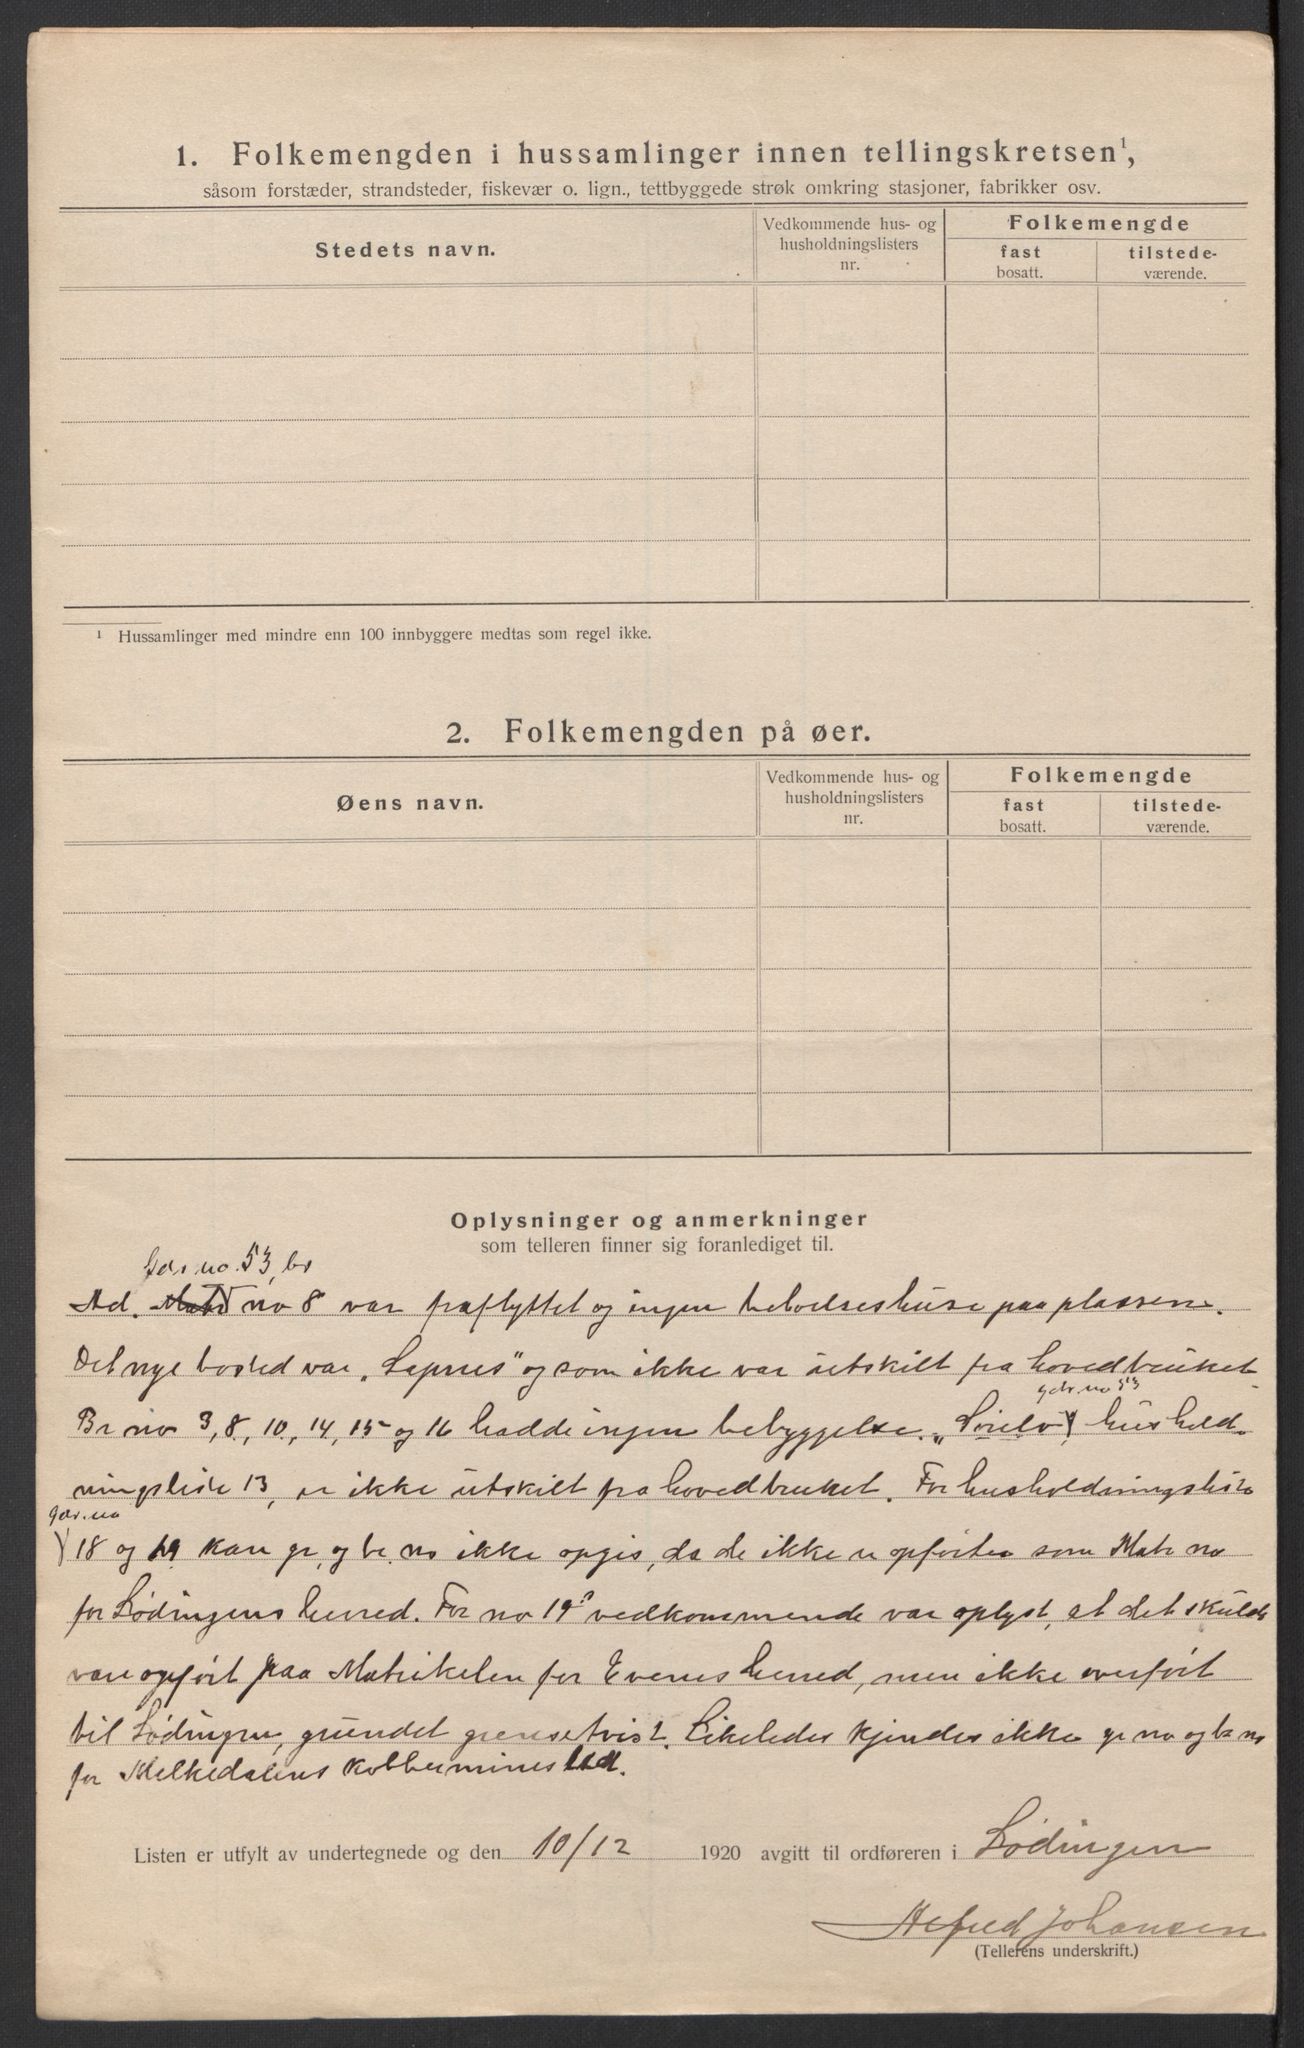 1. Folkemengden i hussamlinger innen tellingskretsen¹,
såsom forstæder, strandsteder, fiskevær o. lign., tettbyggede strøk omkring stasjoner, fabrikker osv.
Stedets navn.
Vedkommende hus- og
husholdningslisters
nr.
Folkemengde
fast
bosatt.
tilstede-
værende.
¹ Hussamlinger med mindre enn 100 innbyggere medtas som regel ikke.
2. Folkemengden på øer.
Øens navn.
Vedkommende hus- og
husholdningslisters
nr.
Folkemengde
fast
bosatt.
tilstede-
værende.
Oplysninger og anmerkninger
som telleren finner sig foranlediget til.
Gdr. no. 53, br
Ad. no 8 var fraflyttet og ingen beboelseshuse paa plassen.
Det nye bosted var og som ikke var utskilt fra hovedbruket
gdr. no 53
Br no 3, 8, 10, 14, 15 og 16 hadde ingen bebyggelse. hushold-
ningsliste 13, er ikke utskilt fra hovedbruket. For husholdningsliste
gdr. no
18 og 19 kan gr. og br. no ikke opgis, da de ikke er opførte som Matr no
for Lødingens herred. For no 19s vedkommende var oplyst, at det skulde
være opført paa Matrikelen for Evenes herred, men ikke overført
til Lødingen, grundet grensetvist. Likeledes kjendes ikke gr no og br no
for Melkedalens Kobberminer
Listen er utfylt av undertegnede og den 10/12 1920 avgitt til ordføreren i Lødingen
Alfred Johansen
(Tellerens underskrift.)